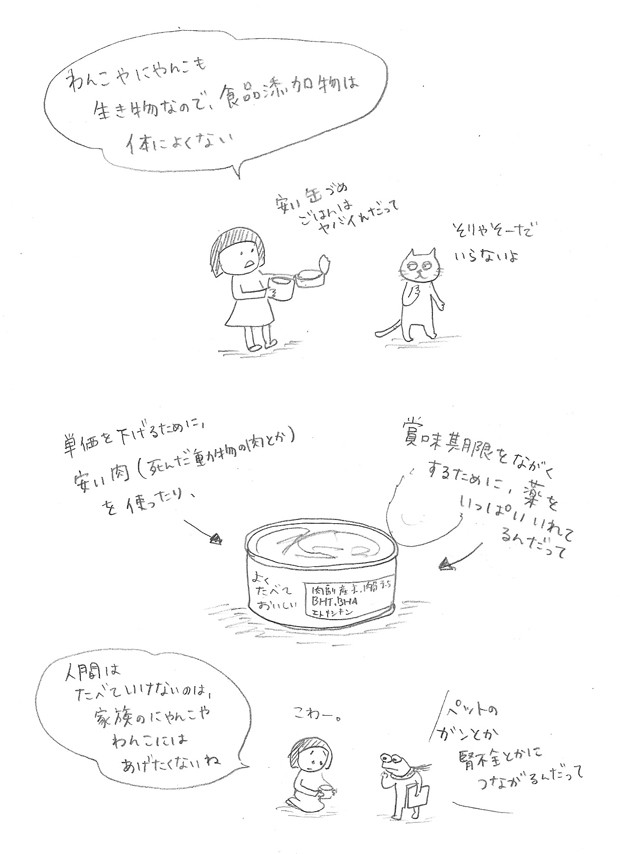 わんこやにゃんこも
生き物なので、食品添加物は
体によくない
安い缶づめ
ごはんは
ヤバイんだって
そりゃそーだ
いらないよ
単価を下げるために、
安い肉(死んだ動物の肉とか)
を使ったり、
賞味期限をながく
するために、薬を
いっぱいいれて
るんだって
よく
たべて
おいしい
肉副産
BHT、BHA
エトキシキン
人間は
たべていけないのは、
家族のにゃんこや
わんこには
あげたくないね
こわー。
ペットの
ガンとか
腎不全とかに
つながるんだって